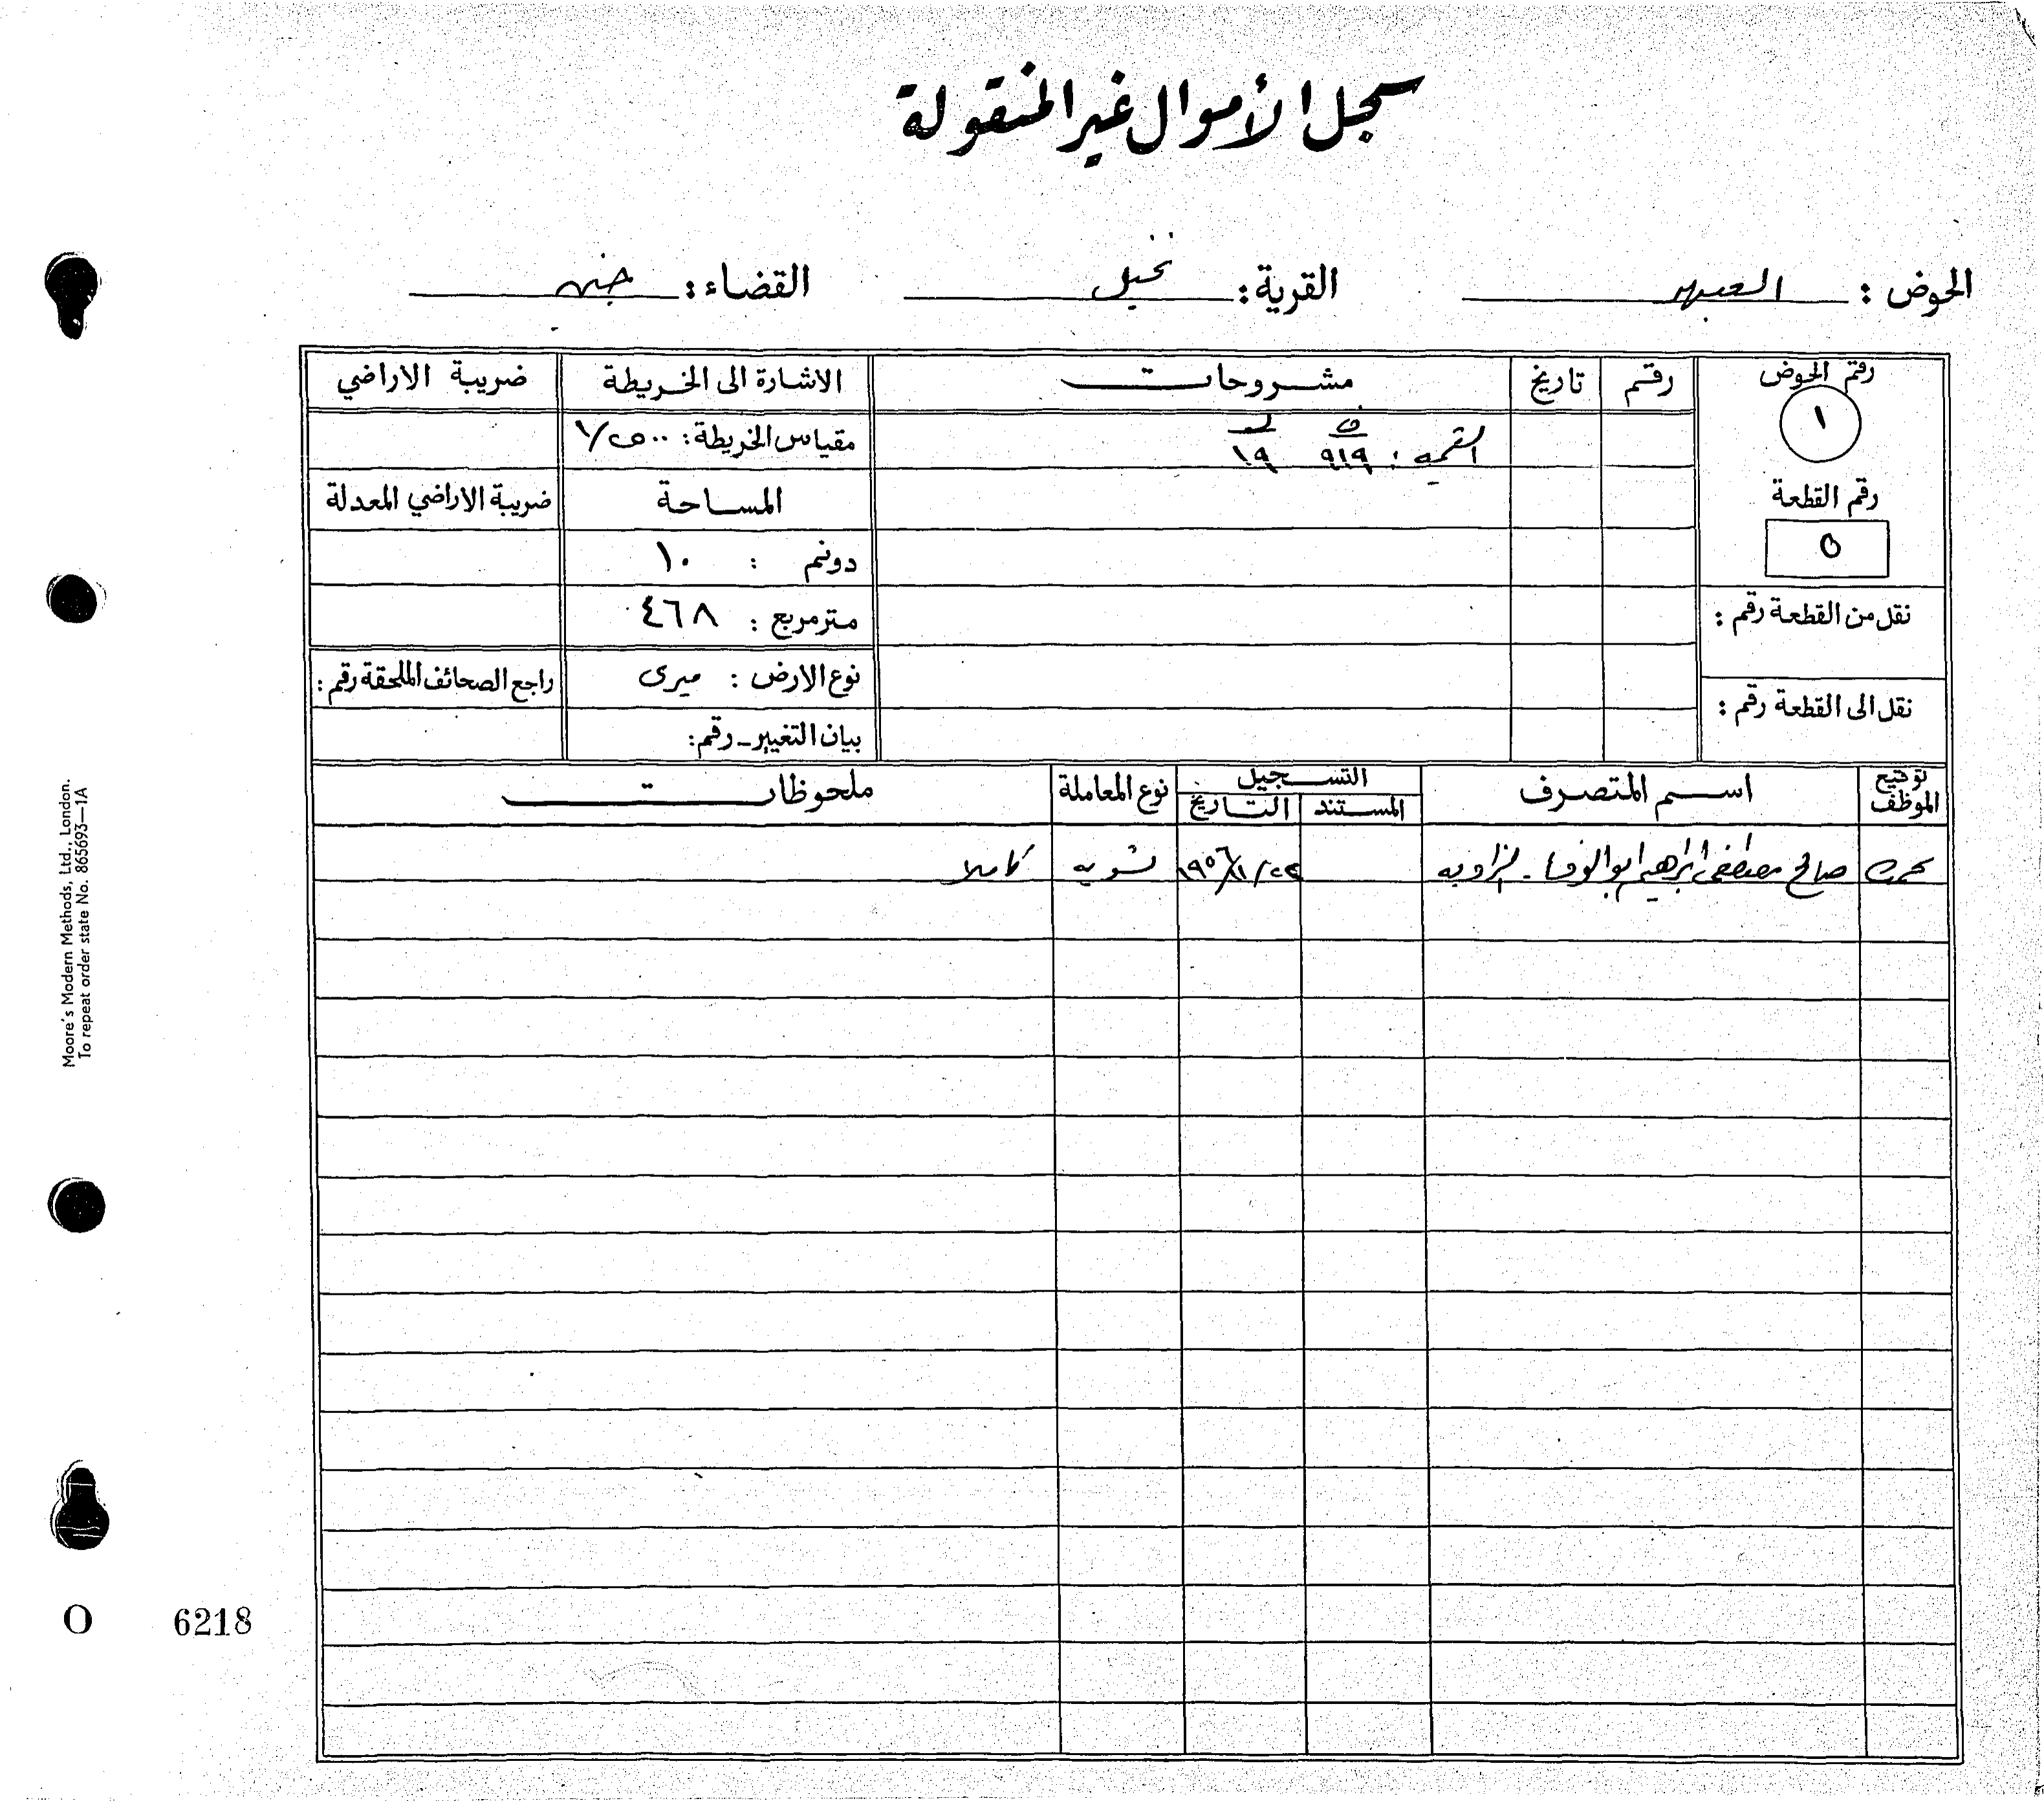 سجل الأموال غير المنقولة
الحوض : القرية : القضاء : جنين
رقم الحوض رقم تاريخ مشروحات الاشارة الى الخريطة ضريبة الاراضي
١ القيمه : ٩١٩ ١٩ مقياس الخريطة : ١/٢٥٠٠
رقم القطعة المساحة ضريبة الاراضي المعدلة
٥ دونم : ١٠
نقل من القطعة رقم : متر مربع : ٤٦٨
نوع الارض : ميرى راجع الصحائف الملحقة رقم :
نقل الى القطعة رقم : بيان التغيير - رقم :
توقيع الموظف اسم المتصرف التسجيل نوع المعاملة ملحوظات
المستند التاريخ
صالح مصطفى ابراهيم ابو الوفا - الزاويه ١٩٥٦/١١/٢٢ تسويه كاملا
Moore's Modern Methods, Ltd., London.
To repeat order state No. 865693—1A
O 6218